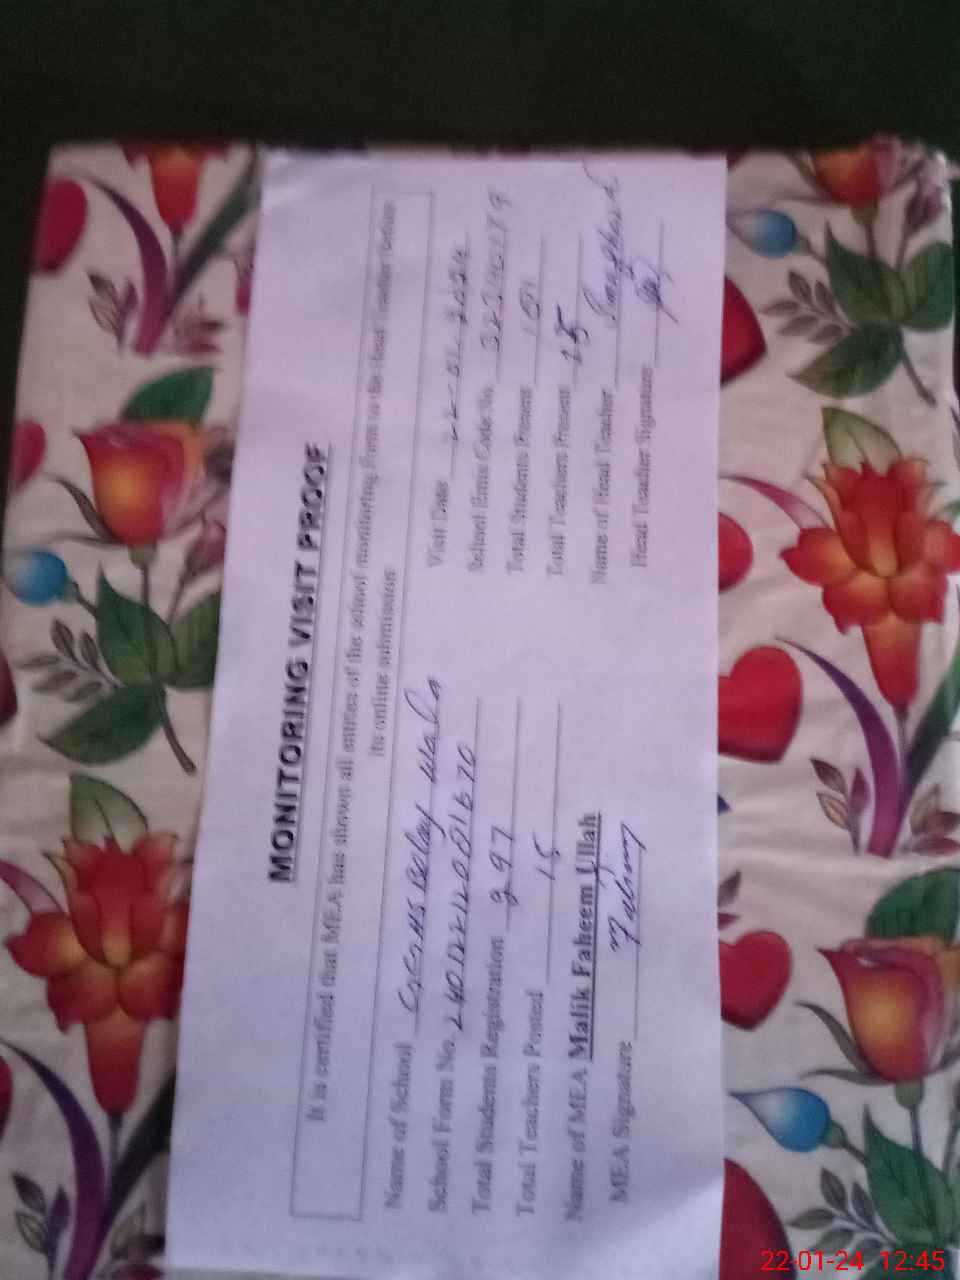 MONITORING VISIT PROOF
It is certified that MEA has shown all entries of the school monitoring Form to the Head Teacher before
its online submission
Name of School GGHS Belay Wala
Visit Date 22-01-2024
School Form No. 24012212001670
School Emis Code No.
Total Students Registration 297
Total Students Present 181
Total Teachers Posted 15
Total Teachers Present 15
Name of MEA Malik Faheem Ullah
Name of Head Teacher
MEA Signature Faheem
Head Teacher Signature
22-01-24 12:45